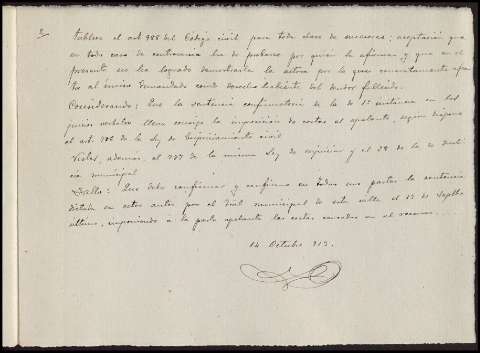 2
tablece el art 988 del Código civil para toda clase de sucesores; aceptación que
en todo caso de controversia ha de probarse por quien la afirma y que en el
presente no ha logrado demostrarla la actora por lo que concretamente afec
ta al único demandado como derecho habiente del deudor fallecido.
Considerando: Que la sentencia confirmatoria de la de 1ª instancia en los
juicios verbales lleva consigo la imposición de costas al apelante, segun dispone
el art. 736 de la Ley de Enjuiciamiento civil
Vistos, además, el 737 de la misma Ley de enjuiciar y el 28 de la de Justi
cia municipal
Fallo: Que debo confirmar y confirmo en todas sus partes la sentencia
dictada en estos autos por el Tribnal municipal de esta villa el 13 de Septbre
ultimo, imponiendo á la parte apelante las costas causadas en el recurso...
14 Octubre 913.